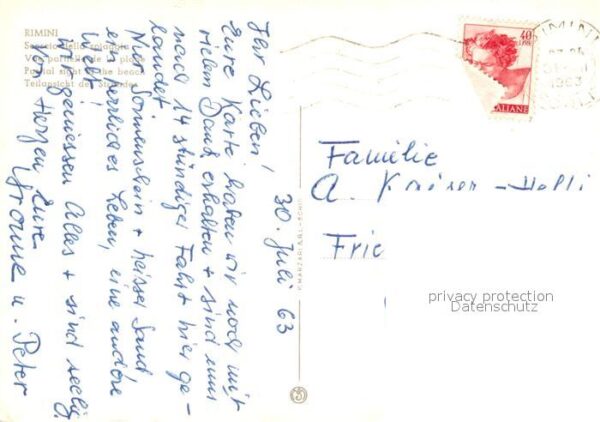 RIMINI
Scorcio della spiaggia
Vue partielle de la plage
Partial sight of the beach
Teilansicht des Strandes
Ihr Lieben!
Eure Karte haben wir noch mit
vielem Dank erhalten + sind nun
nach 14 stündiger Fahrt hier ge-
landet.
Nur Sonnenschein + heisser Sand
ein herrliches Leben, eine andere
Welt!
Wir geniessen Alles + sind seelig.
Von Herzen Eure
Yvonne u. Peter
30. Juli 63
40
LIRE
ALIANE
RIMINI
1963
Familie
A.
Fric
privacy protection
Datenschutz